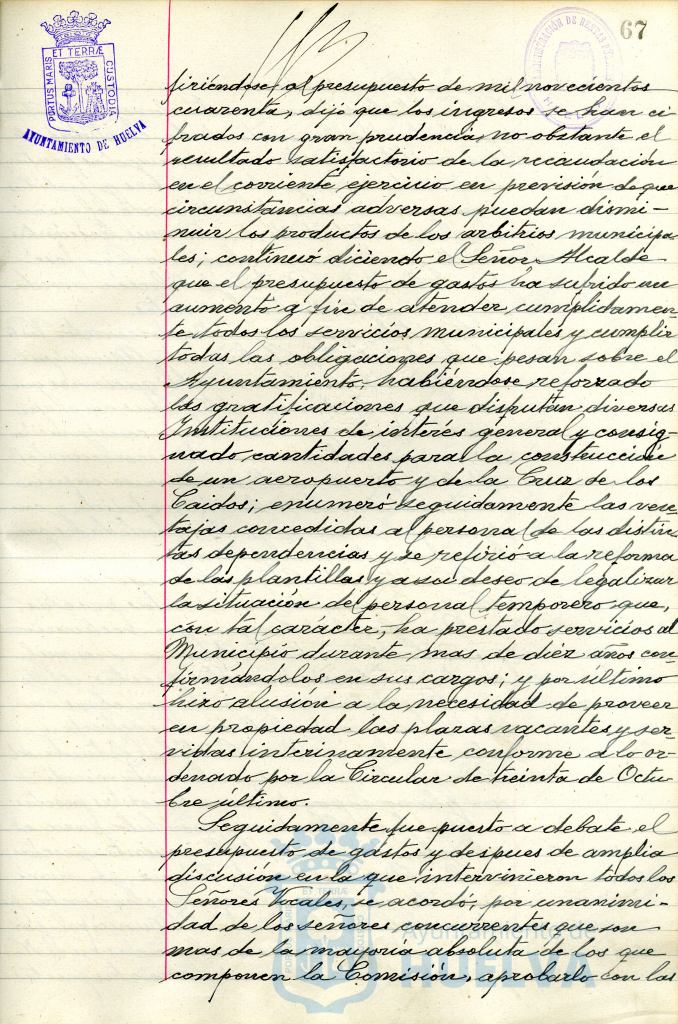 67
PORTUS MARIS ET TERRÆ CUSTODIA
AYUNTAMIENTO DE HUELVA
firiéndose al presupuesto de mil novecientos
cuarenta, dijo que los ingresos se han ci
frados con gran prudencia, no obstante el
resultado satisfactorio de la recaudación
en el corriente ejercicio en previsión de que
circunstancias adversas puedan dismi-
nuir los productos de los arbitrios municipa-
les; continuó diciendo el Señor Alcalde
que el presupuesto de gastos ha subrido un
aumento a fin de atender cumplidamen-
te todos los servicios municipales y cumplir
todas las obligaciones que pesan sobre el
Ayuntamiento, habiéndose reforzado
las gratificaciones que disfrutan diversas
Instituciones de interés general y consig-
nado cantidades para la construcción
de un aeropuerto y de la Cruz de los
Caidos; enumeró seguidamente las ven-
tajas concedidas al personal de las distin-
tas dependencias y se refirió a la reforma
de las plantillas y a su deseo de legalizar
la situación del personal temporero que,
con tal carácter, ha prestado servicios al
Municipio durante mas de diez años con-
firmándolos en sus cargos; y por último
hizo alusión a la necesidad de proveer
en propiedad las plazas vacantes y ser-
vidas interinamente conforme a lo or-
denado por la Circular de treinta de Octu-
bre último.
Seguidamente fue puesto a debate el
presupuesto de gastos y despues de amplia
discusión en la que intervinieron todos los
Señores Vocales, se acordó, por unanimi-
dad de los señores concurrentes que son
mas de la mayoría absoluta de los que
componen la Comisión, aprobarlo con las
Ayuntamiento de
HUELVA